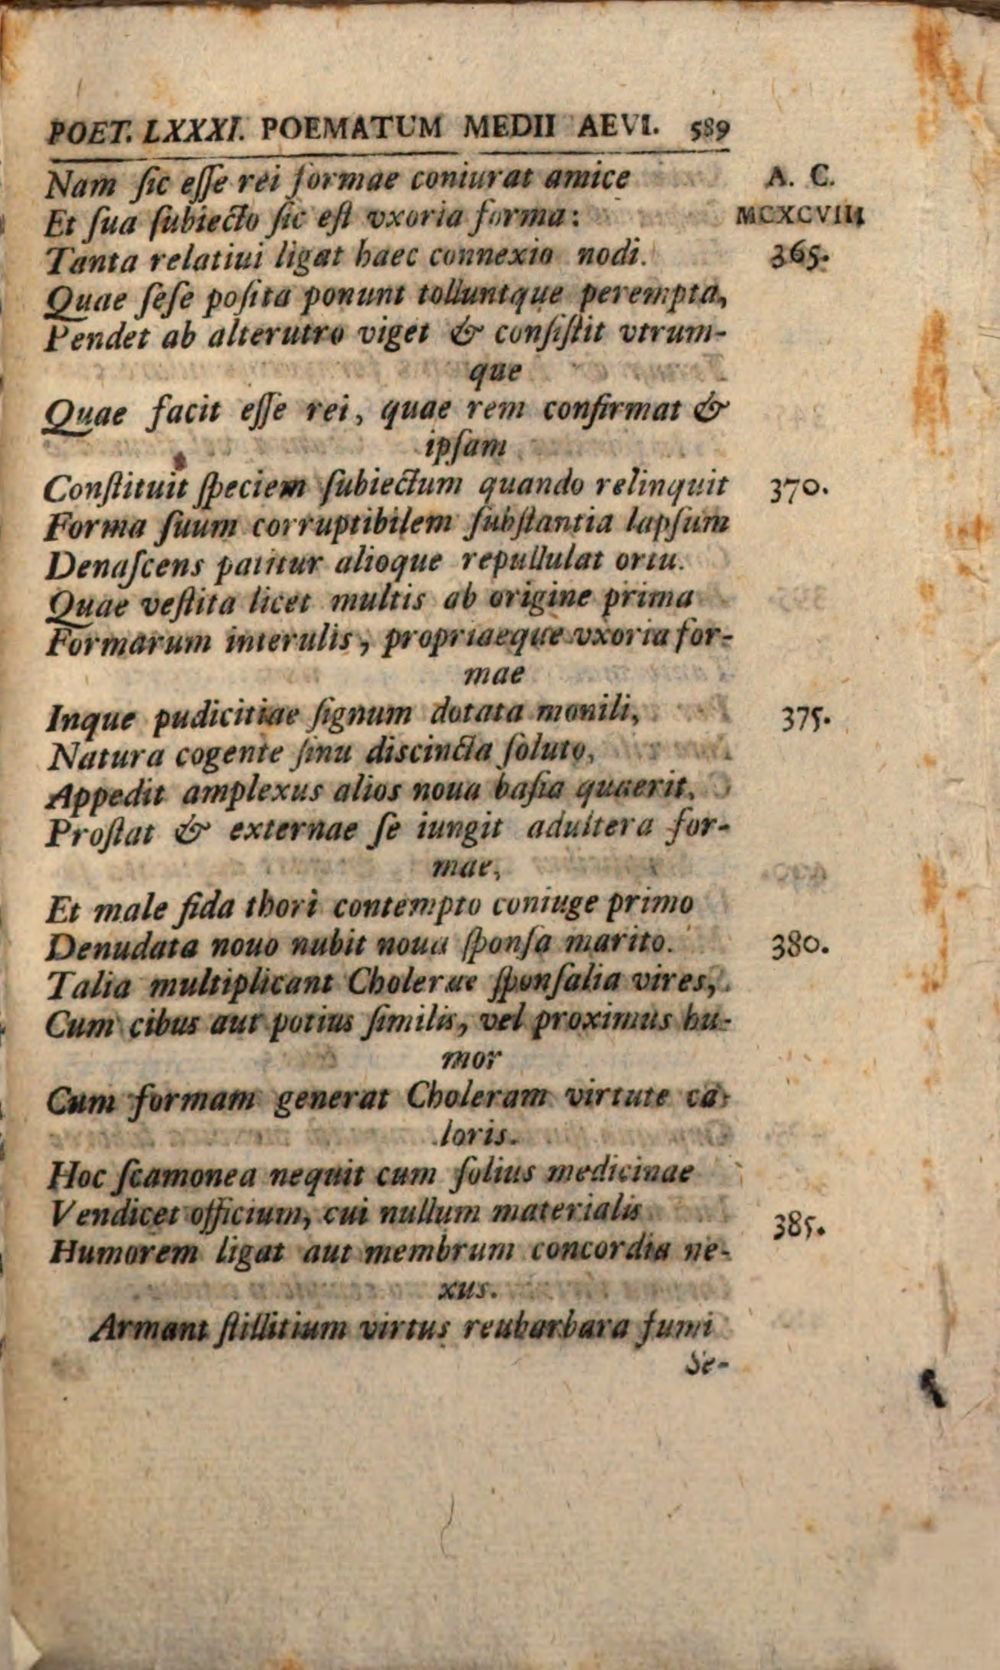 POET. LXXXI. POEMATUM MEDII AEVI. 589
Nam ſic eſſe rei formae coniurat amice A. C.
Et ſua ſubiecto ſic eſt vxoria forma: MCXCVIII
Tanta relatiui ligat haec connexio nodi. 365.
Quae ſeſe poſita ponunt tolluntque perempta,
Pendet ab alterutro viget & conſiſtit vtrum-
que
Quae facit eſſe rei, quae rem confirmat &
ipſam
Conſtituit ſpeciem ſubiectum quando relinquit 370.
Forma ſuum corruptibilem ſubſtantia lapſum
Denaſcens patitur alioque repullulat ortu.
Quae veſtita licet multis ab origine prima
Formarum interulis, propriaeque vxoria for-
mae
Inque pudicitiae ſignum dotata monili, 375.
Natura cogente ſinu diſcincta ſoluto,
Appedit amplexus alios noua baſia quaerit.
Proſtat & externae ſe iungit adultera for-
mae,
Et male fida thori contempto coniuge primo
Denudata nouo nubit noua ſponſa marito. 380.
Talia multiplicant Cholerae ſponſalia vires,
Cum cibus aut potius ſimilis, vel proximus hu-
mor
Cum formam generat Choleram virtute ca-
loris.
Hoc ſcamonea nequit cum ſolius medicinae
Vendicet officium, cui nullum materialis 385.
Humorem ligat aut membrum concordia ne-
xus.
Armant ſtillitium virtus reubarbara fumi
Se-